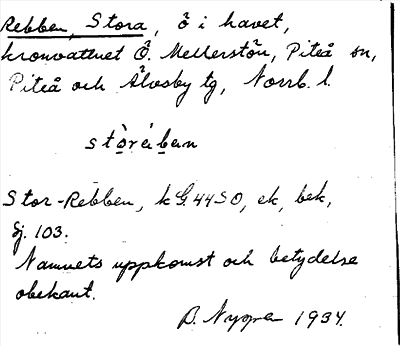 Rebben, Stora, ö i havet,
kronvattnet Ö. Mellerstön, Piteå sn,
Piteå och Älvsby tg, Norrb. l.
stòrában
Stor-Rebben, kG.44SO, ek, bek,
Sj. 103.
Namnets uppkomst och betydelse
obekant.
B. Nygren 1934.